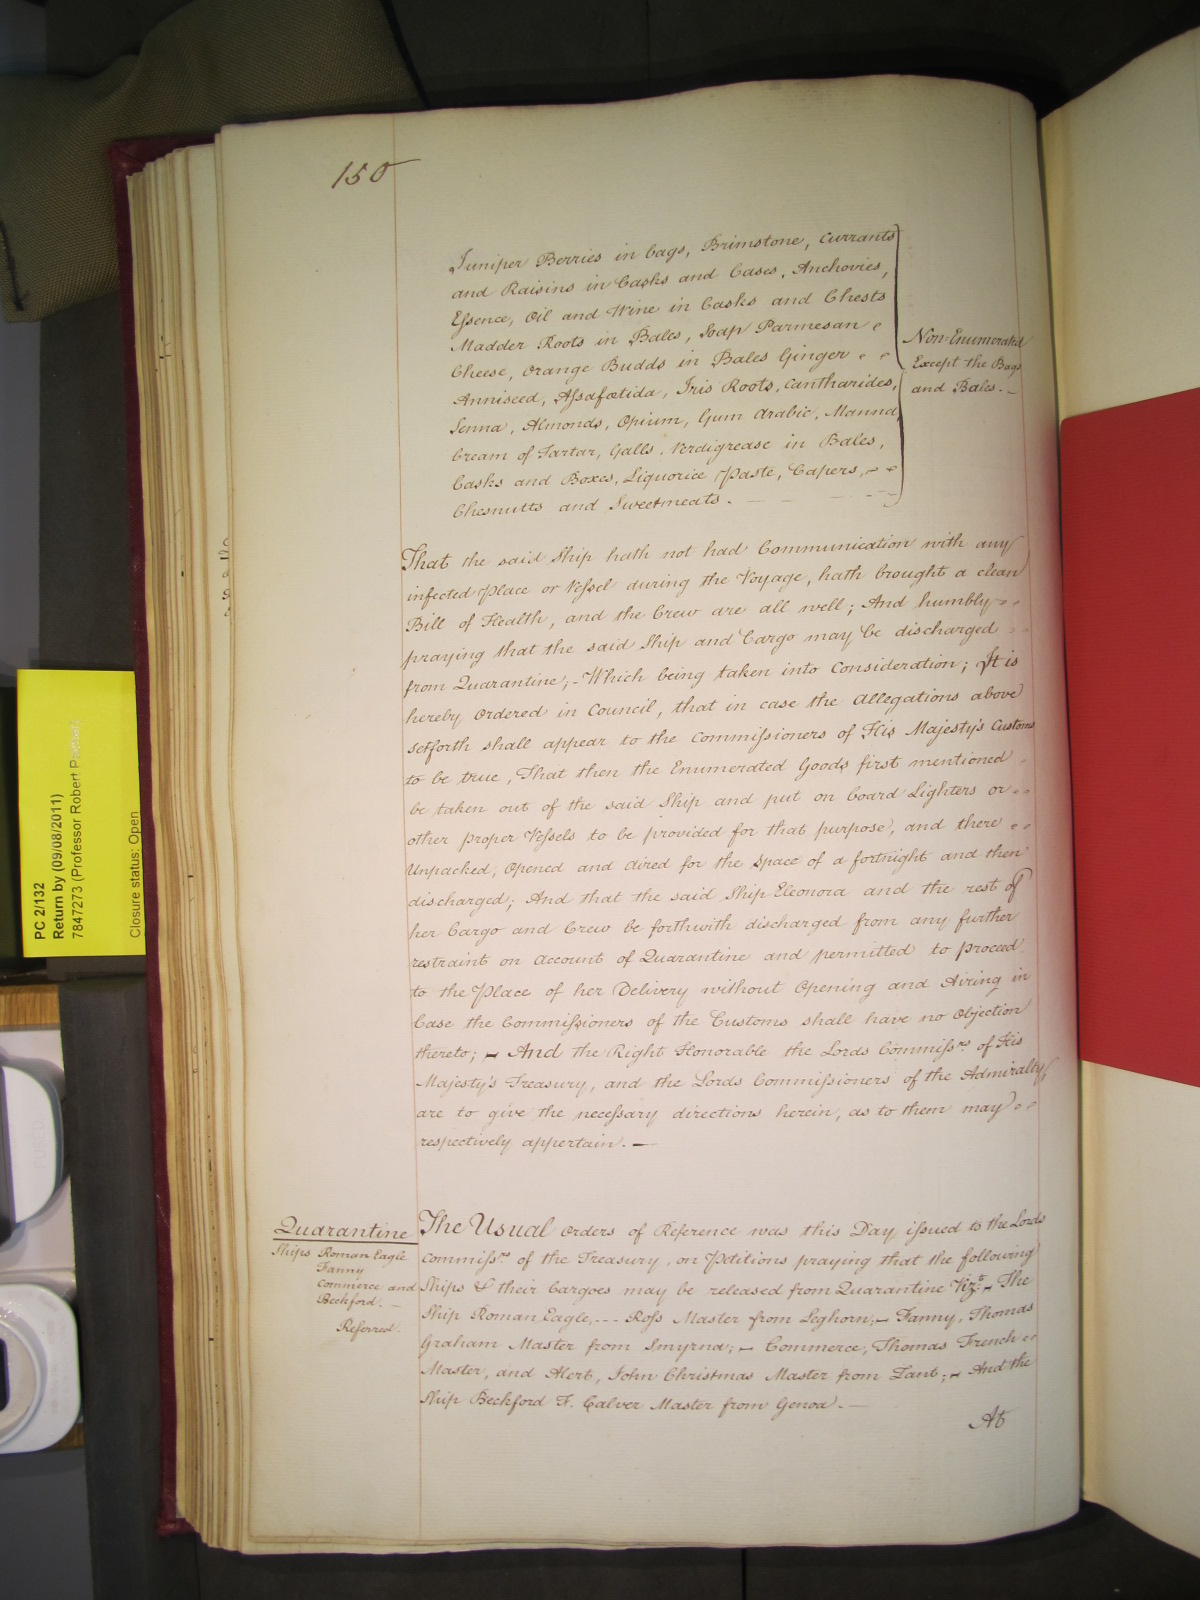 150
Juniper Berries in bags, Brimstone, Currants
and Raisins in Casks and Cases, Anchovies,
Essence, Oil and Wine in Casks and Chests
Madder Roots in Bales, Soap Parmesan
Cheese, Orange Budds in Bales Ginger
Anniseed, Assafœtida, Iris Roots, Cantharides,
Senna, Almonds, Opium, Gum Arabic, Manna,
Cream of Tartar, Galls, Verdigrease in Bales,
Casks and Boxes, Liquorice Paste, Capers,
Chesnutts and Sweetmeats. —
Non-Enumerated
Except the Bags
and Bales. —
That the said Ship hath not had Communication with any
infected Place or Vessel during the Voyage, hath brought a clean
Bill of Health, and the Crew are all well; And humbly
praying that the said Ship and Cargo may be discharged
from Quarantine; - Which being taken into Consideration; It is
hereby Ordered in Council, that in case the Allegations above
setforth shall appear to the Commissioners of His Majesty's Customs
to be true, That then the Enumerated Goods first mentioned
be taken out of the said Ship and put on board Lighters or
other proper Vessels to be provided for that purpose, and there
Unpacked, Opened and aired for the Space of a fortnight and then
discharged; And that the said Ship Eleonora and the rest of
her Cargo and Crew be forthwith discharged from any further
restraint on Account of Quarantine and permitted to proceed
to the Place of her Delivery without Opening and Airing in
Case the Commissioners of the Customs shall have no Objection
thereto; — And the Right Honorable the Lords Commissrs of His
Majesty's Treasury, and the Lords Commissioners of the Admiralty
are to give the necessary directions herein, as to them may
respectively appertain. —
Quarantine
Ships Roman Eagle
Fanny
Commerce and
Beckford. —
Referred.
The Usual Orders of Reference was this Day issued to the Lords
Commissrs of the Treasury, on Petitions praying that the following
Ships & their Cargoes may be released from Quarantine Vizt — The
Ship Roman Eagle, --- Ross Master from Leghorn; — Fanny, Thomas
Graham Master from Smyrna; — Commerce, Thomas French
Master, and Alert, John Christmas Master from Zant; — And the
Ship Beckford F. Calver Master from Genoa. —
At
PC 2/132
Return by (09/08/2011)
7847273 (Professor Robert
Closure status: Open